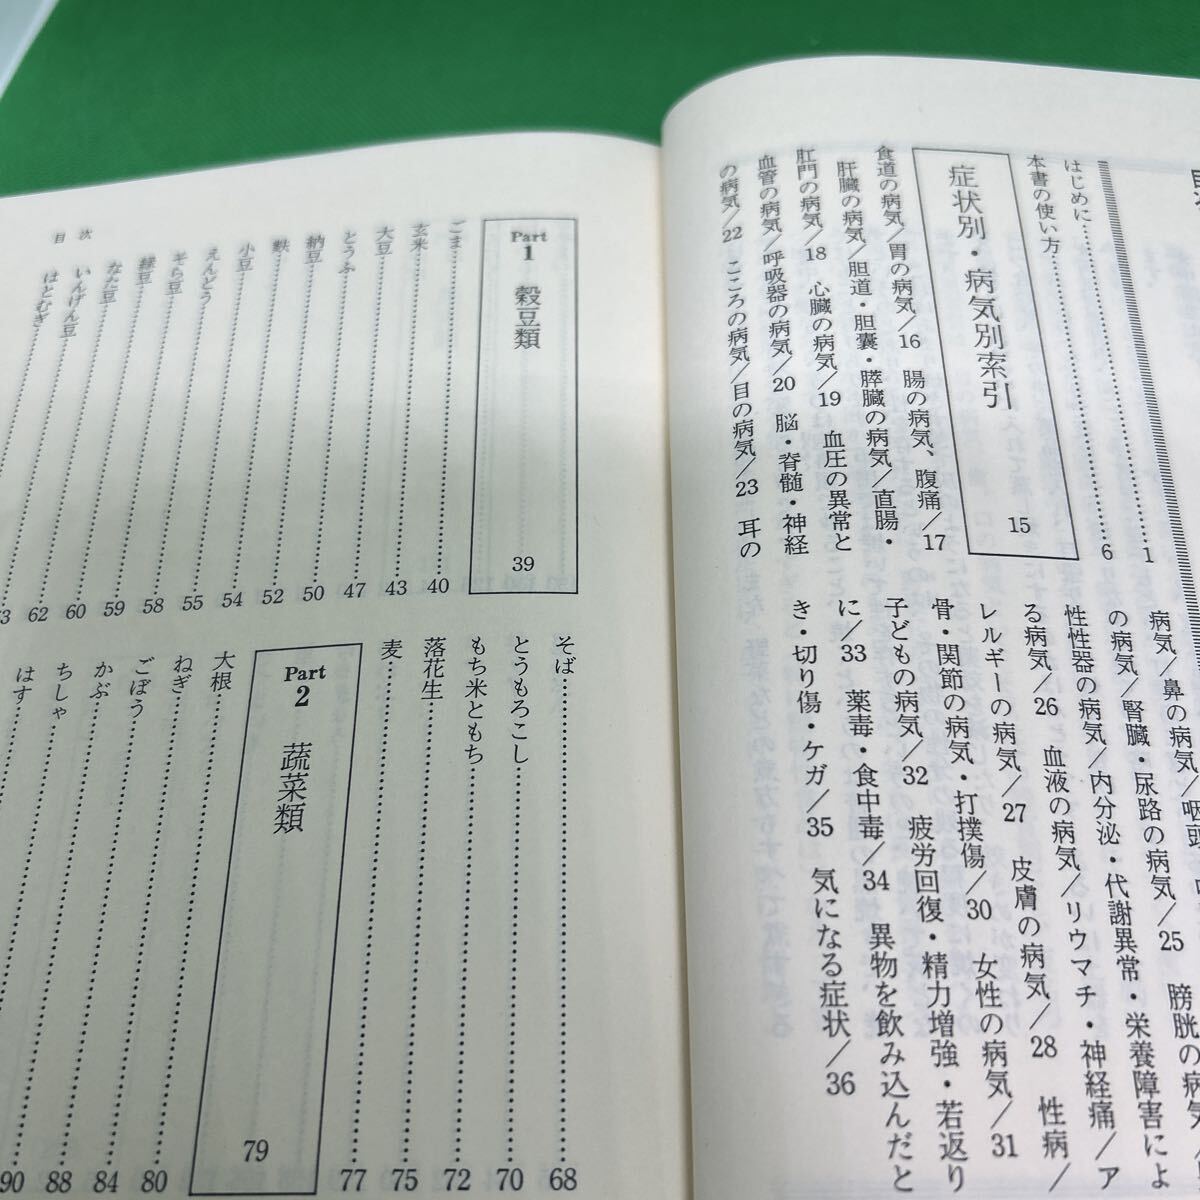 はじめに 1
本書の使い方 6
症状別・病気別索引 15
食道の病気/胃の病気/16 腸の病気、腹痛/17
肝臓の病気/胆道・胆嚢・膵臓の病気/直腸・
肛門の病気/18 心臓の病気/19 血圧の異常と
血管の病気/呼吸器の病気/20 脳・脊髄・神経
の病気/22 こころの病気/目の病気/23 耳の
病気/鼻の病気/咽頭
の病気/腎臓・尿路の病気/25 膀胱の病気/
性性器の病気/内分泌・代謝異常・栄養障害によ
る病気/26 血液の病気/リウマチ・神経痛/ア
レルギーの病気/27 皮膚の病気/28 性病/
骨・関節の病気・打撲傷/30 女性の病気/31
子どもの病気/32 疲労回復・精力増強・若返り
に/33 薬毒・食中毒/34 異物を飲み込んだと
き・切り傷・ケガ/35 気になる症状/36
Part 1 穀豆類 39
ごま 40
玄米 43
大豆 47
とうふ 50
納豆 52
麩 54
小豆 55
えんどう 58
そら豆 59
緑豆 60
なた豆 62
いんげん豆
はとむぎ
そば 68
とうもろこし 70
もち米ともち 72
落花生 75
麦 77
Part 2 蔬菜類 79
大根 80
ねぎ 84
ごぼう 88
かぶ 90
ちしゃ
はす
目次